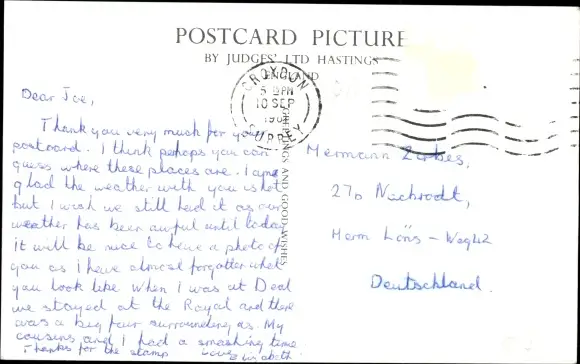 POSTCARD PICTURE
BY JUDGES' LTD HASTINGS
ENGLAND
CROYDON
5 PM
10 SEP
196
SURREY
GREETINGS AND GOOD WISHES
Dear Joe,
Thank you very much for your
postcard. I think perhaps you can
guess where these places are. I am
glad the weather with you is hot
but I wish we still had it as our
weather has been awful until today
it will be nice to have a photo of
you as I have almost forgotten what
you look like. When I was at Deal
we stayed at the Royal and there
was a big fair surrounding us. My
cousins and I had a smashing time
Thanks for the stamp Love Elizabeth
Hermann Zirbes,
270 Nachrodt,
Herm Löns - Weg 42
Deutschland.